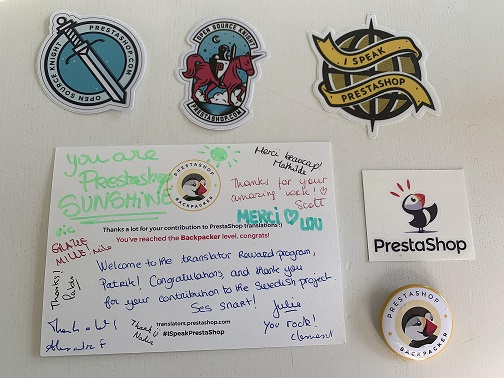 OPEN SOURCE KNIGHT
PRESTASHOP.COM
OPEN SOURCE KNIGHT
PRESTASHOP.COM
I SPEAK
PRESTASHOP
you are
Prestashop
SUNSHINE
Vic
PRESTASHOP
BACKPACKER
Merci beaucoup!
Mathilde
Thanks for your
amazing work!
Scott
MERCI
LOU
Thanks a lot for your contribution to PrestaShop translations!
You've reached the Backpacker level, congrats!
GRAZIE
MILLE!
Thanks!
Welcome to the translator Reward program,
Patrik! Congratulations, and thank you
for your contribution to the Swedish project
Ses snart! Julie
Thank u!
Alexandre F
Thank U
translators.prestashop.com
#ISpeakPrestaShop
You rock!
Clement
PrestaShop
PRESTASHOP
BACKPACKER